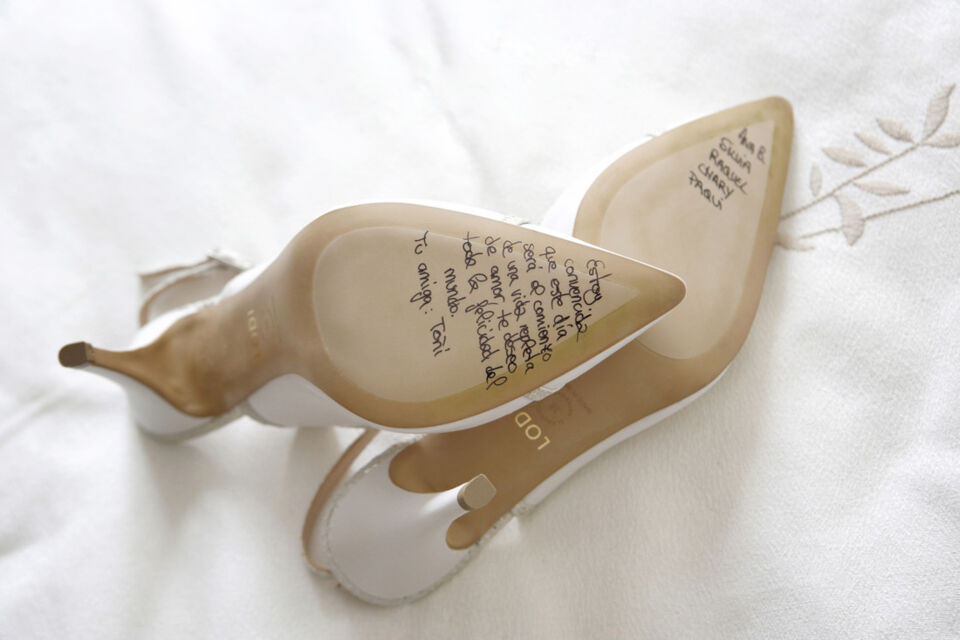 Estoy
convencida
que este día
será el comienzo
de una vida repleta
de amor, te deseo
toda la felicidad del
mundo.
Tu amiga: Toñi
Ana B.
SILVIA
RAQUEL
CHARY
PAQUI
LODI
LOD